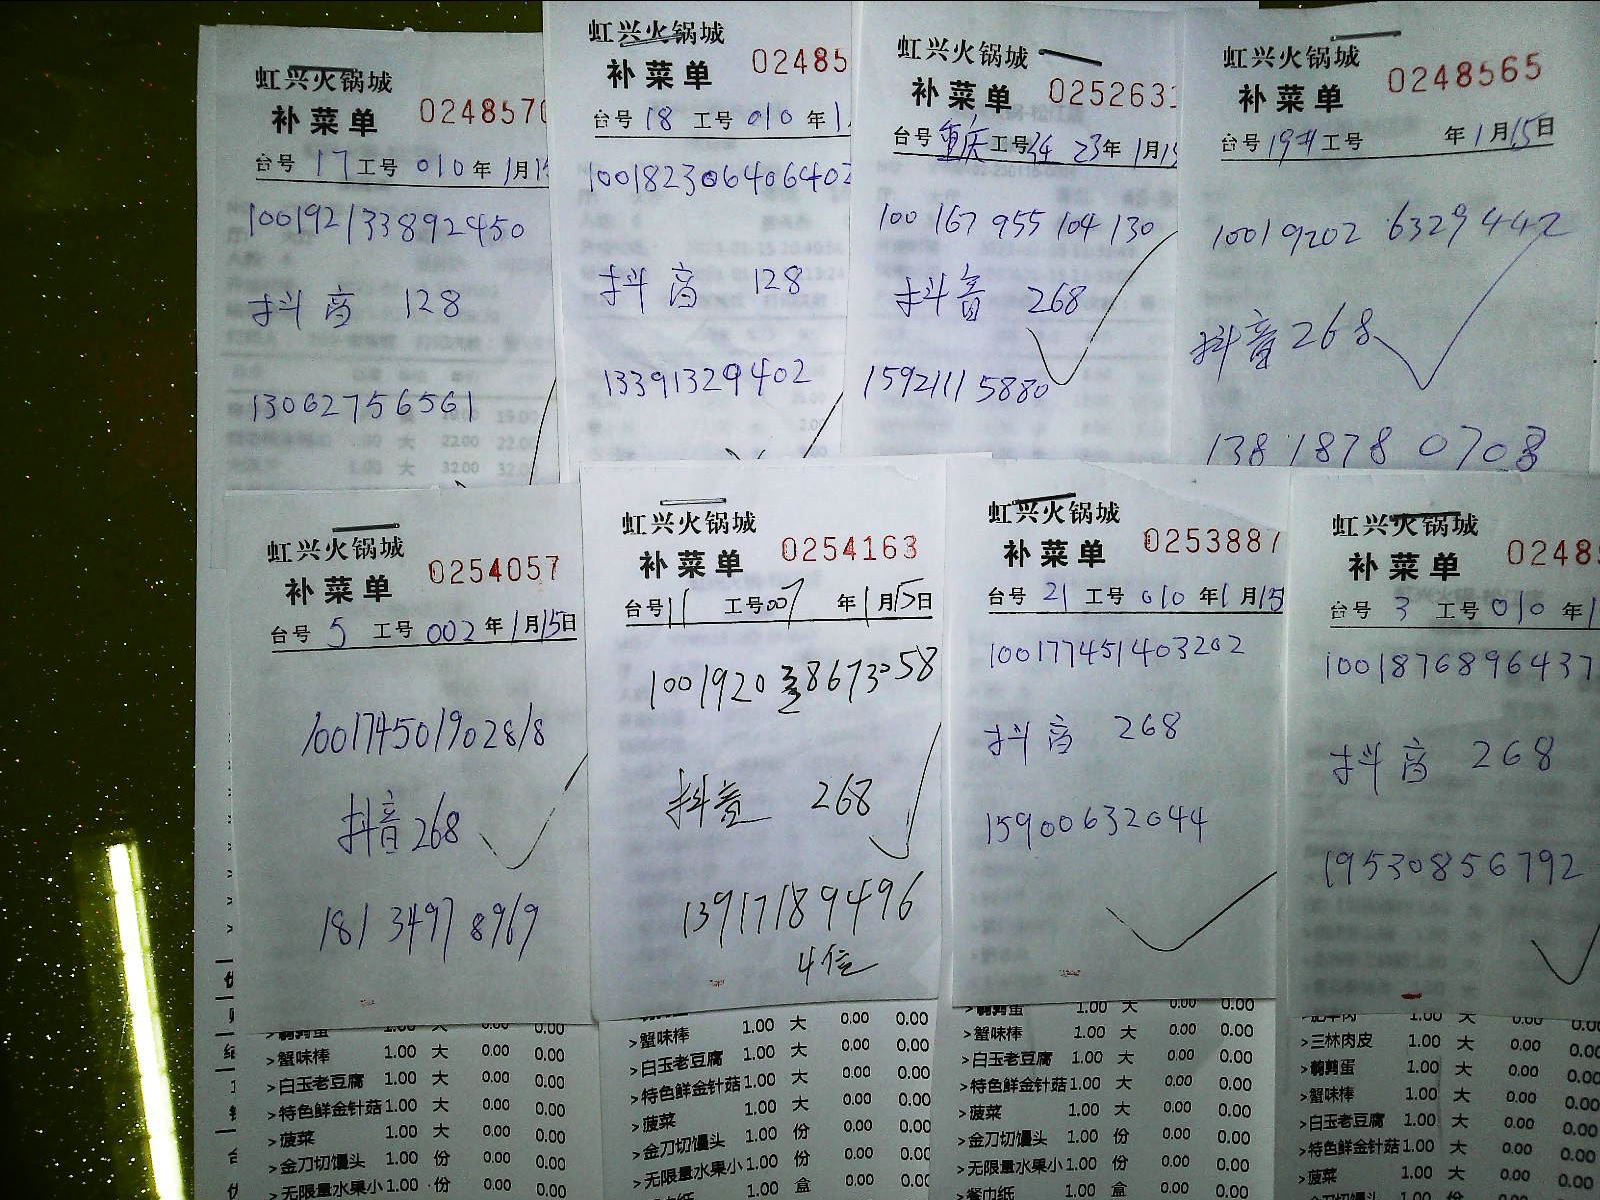 虹兴火锅城
补菜单 0248570
台号 17 工号 010 年 1月15
100192133892450
抖音 128
13062756561
虹兴火锅城
补菜单 02485
台号 18 工号 010 年 1
100182306406402
抖音 128
13391329402
虹兴火锅城
补菜单 0252631
台号 重庆 工号 34 23年1月15
100 167 955 104 130
抖音 268
15921115880
虹兴火锅城
补菜单 0248565
台号 19 工号 年1月15日
10019202 6329442
抖音 268
138 1878 0708
大 22.00 22.00
1.00 大 32.00 32.0
虹兴火锅城
补菜单 0254057
台号 5 工号 002 年1月15日
100174501902818
抖音 268
181 3497 8969
>鹌鹑蛋 1.00 大 0.00 0.00
>蟹味棒 1.00 大 0.00 0.00
>白玉老豆腐 1.00 大 0.00 0.00
>特色鲜金针菇 1.00 大 0.00 0.00
>菠菜 1.00 大 0.00 0.00
>金刀切馒头 1.00 份 0.00 0.00
>无限量水果小 1.00 份 0.00 0.00
虹兴火锅城
补菜单 0254163
台号 11 工号 007 年1月15日
1001920 8673058
抖音 268
13917189496
4位
>蟹味棒 1.00 大 0.00 0.00
>白玉老豆腐 1.00 大 0.00 0.00
>特色鲜金针菇 1.00 大 0.00 0.00
>菠菜 1.00 大 0.00 0.00
>金刀切馒头 1.00 份 0.00 0.00
>无限量水果小 1.00 份 0.00 0.00
1.00 盒 0.00 0.00
虹兴火锅城
补菜单 0253887
台号 21 工号 010 年1月15
100177451403202
抖音 268
15900632044
>鹌鹑蛋 1.00 大 0.00 0.00
>蟹味棒 1.00 大 0.00 0.00
>白玉老豆腐 1.00 大 0.00 0.00
>特色鲜金针菇 1.00 大 0.00 0.00
>菠菜 1.00 大 0.00 0.00
>金刀切馒头 1.00 份 0.00 0.00
>无限量水果小 1.00 份 0.00 0.00
>餐巾纸 1.00 盒 0.00 0.00
虹兴火锅城
补菜单 0248
台号 3 工号 010 年1
1001876896437
抖音 268
19530856792
>肥牛肉 1.00 大 0.00 0.00
>三林肉皮 1.00 大 0.00 0.00
>鹌鹑蛋 1.00 大 0.00 0.00
>蟹味棒 1.00 大 0.00 0.00
>白玉老豆腐 1.00 大 0.00 0.00
>特色鲜金针菇 1.00 大 0.00 0.00
>菠菜 1.00 大 0.00 0.00